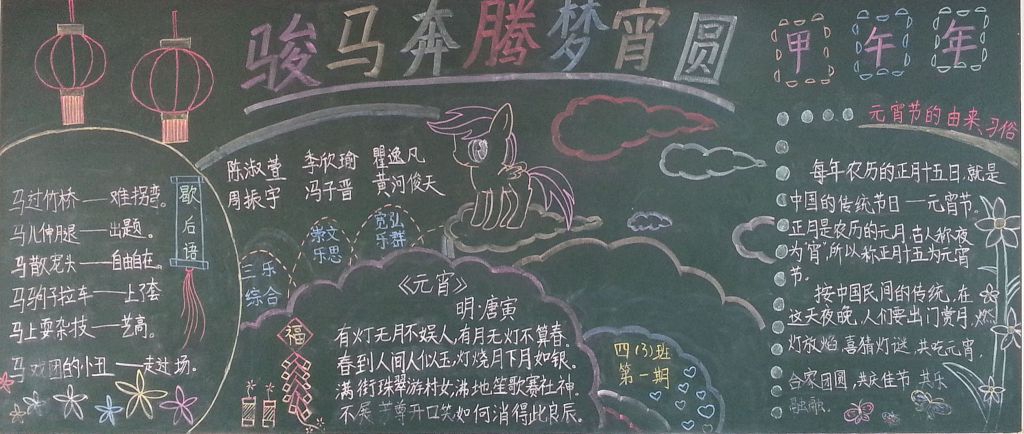 骏马奔腾梦宵圆
甲午年
马过竹桥——难拐弯。
马儿伸腿——出题。
马散笼头——自由自在。
马驹子拉车——上了套
马上耍杂技——艺高。
马戏团的小丑——走过场。
歇后语
陈淑萱 李欣瑜 瞿逸凡
周振宇 冯子晋 黄河俊天
三乐综合
崇文乐思
宽弘乐群
福
《元宵》
明·唐寅
有灯无月不娱人,有月无灯不算春。
春到人间人似玉,灯烧月下月如银。
满街珠翠游村女,沸地笙歌赛社神。
不展芳尊开口笑,如何消得此良辰。
四(3)班
第一期
元宵节的由来、习俗
每年农历的正月十五日,就是
中国的传统节日—元宵节。
正月是农历的元月,古人称夜
为"宵",所以称正月十五为元宵
节。
按中国民间的传统,在
这天夜晚,人们要出门赏月,燃
灯放焰,喜猜灯谜,共吃元宵,
合家团圆,共庆佳节,其乐
融融。